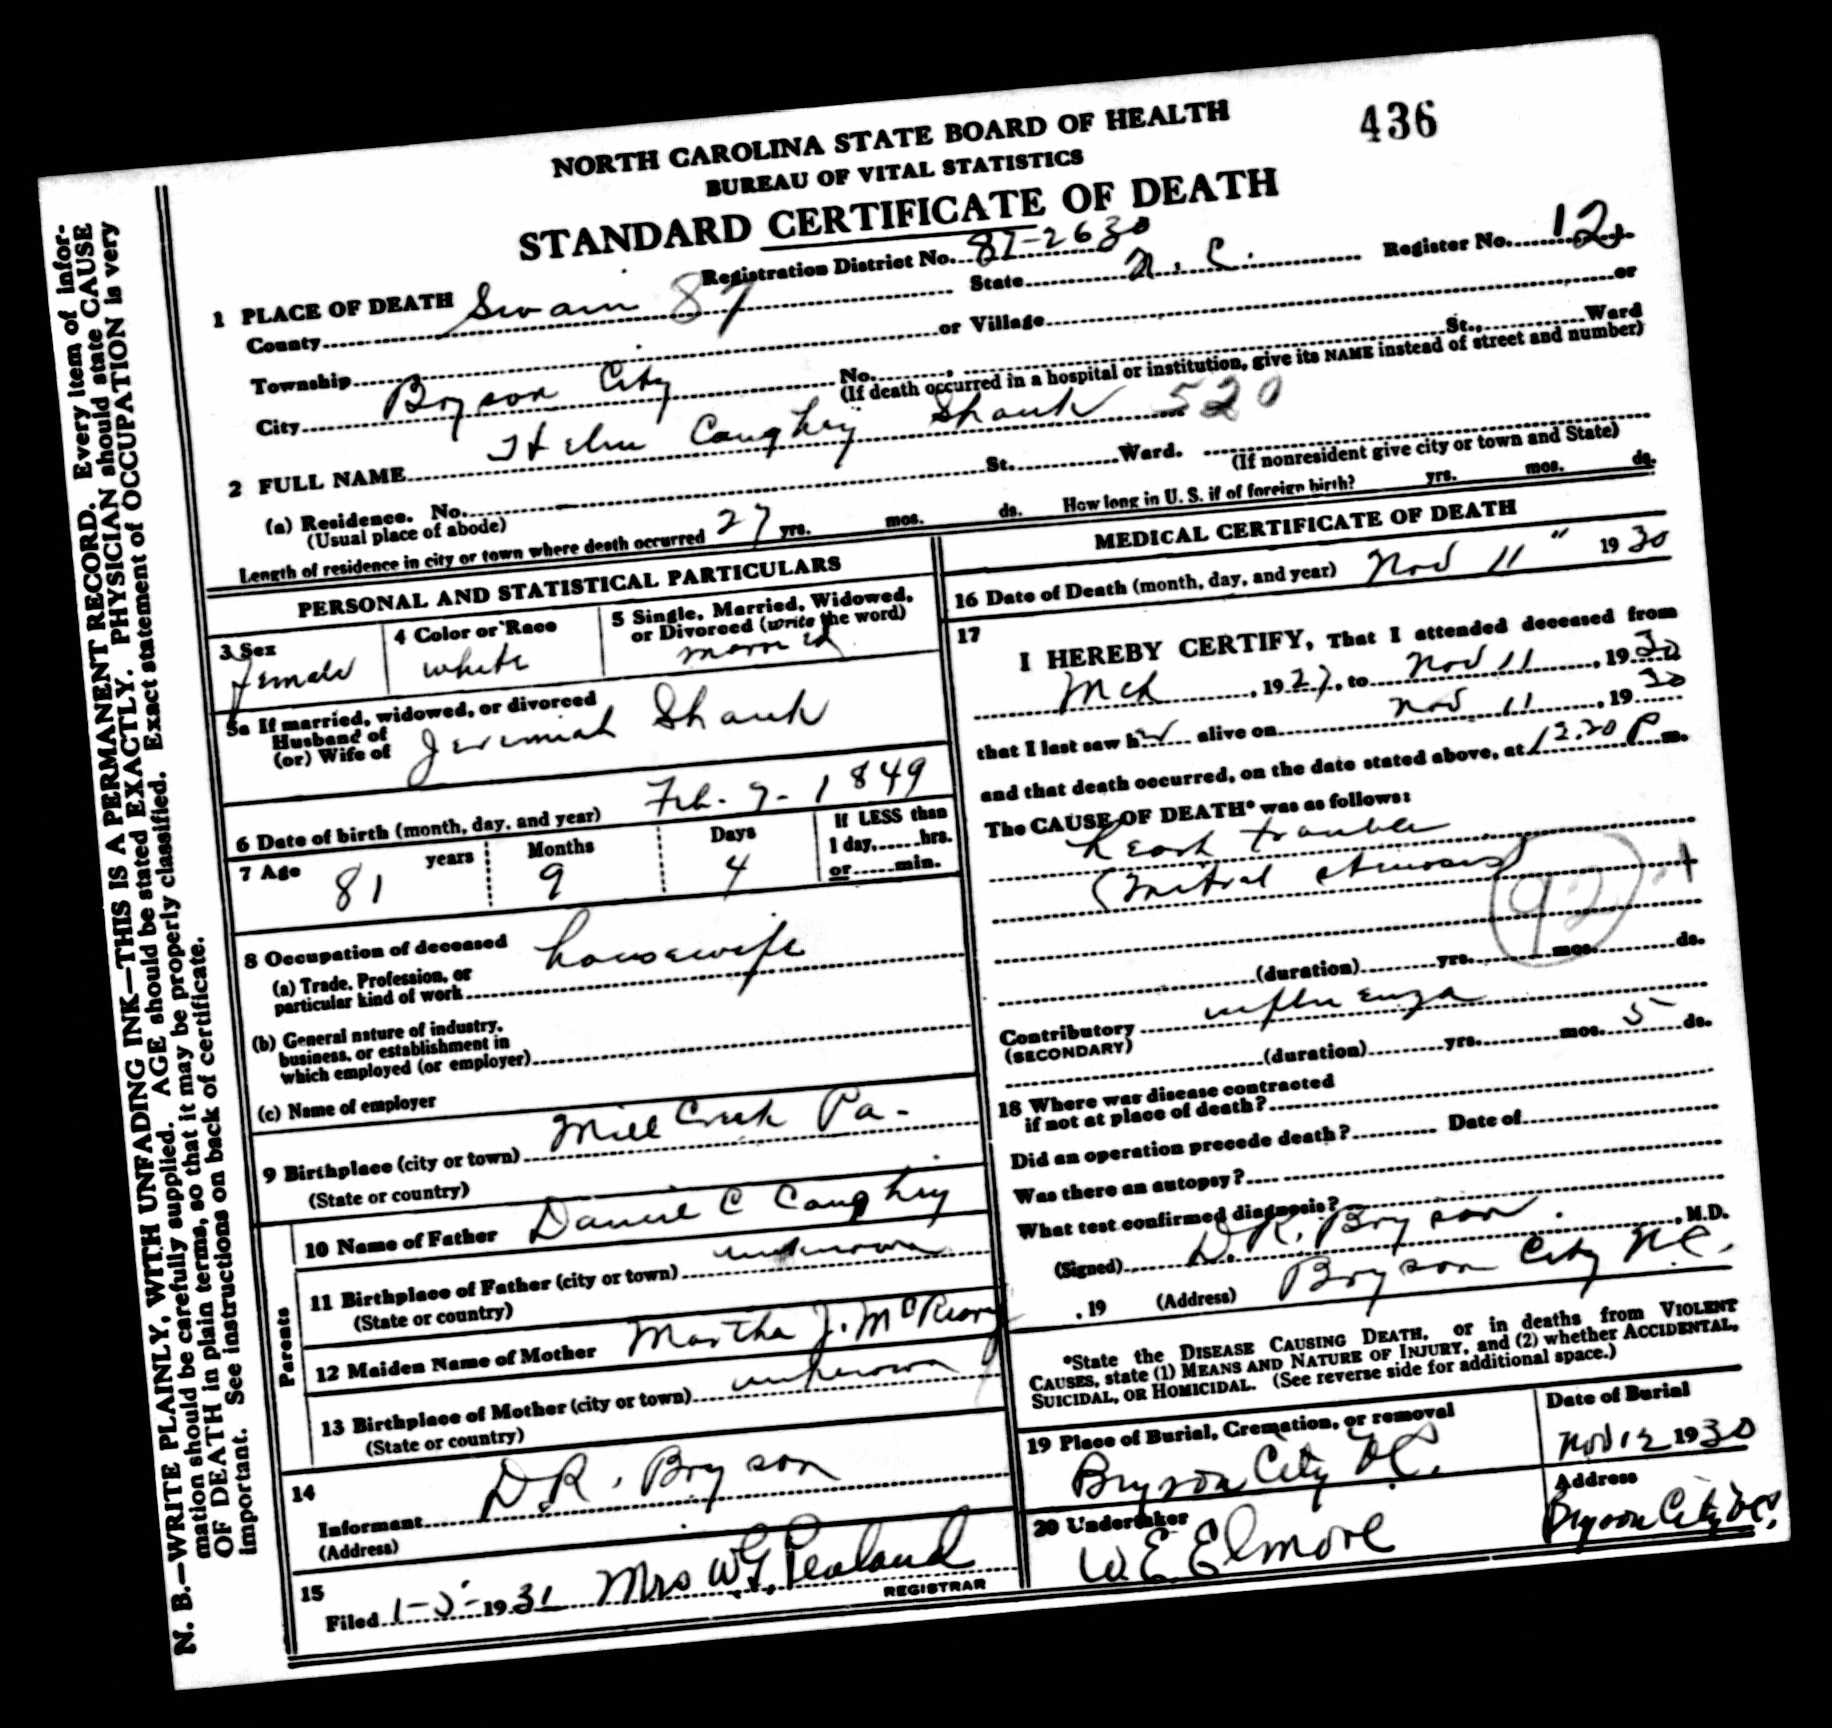 436
NORTH CAROLINA STATE BOARD OF HEALTH
BUREAU OF VITAL STATISTICS
STANDARD CERTIFICATE OF DEATH
Registration District No. 87-2630 Register No. 12
1 PLACE OF DEATH
County Swain 87 State N. C.
Township or Village or
City Bryson City No. St., Ward
(If death occurred in a hospital or institution, give its NAME instead of street and number)
2 FULL NAME Helen Caughey Shank 520
(a) Residence. No. St. Ward.
(Usual place of abode) (If nonresident give city or town and State)
Length of residence in city or town where death occurred 27 yrs. mos. ds. How long in U. S. if of foreign birth? yrs. mos. ds.
PERSONAL AND STATISTICAL PARTICULARS
3 Sex
female
4 Color or Race
white
5 Single, Married, Widowed,
or Divorced (write the word)
married
5a If married, widowed, or divorced
Husband of
(or) Wife of Jeremiah Shank
6 Date of birth (month, day, and year) Feb. 7- 1849
7 Age 81 years Months 9 Days 4
If LESS than
1 day, hrs.
or min.
8 Occupation of deceased
(a) Trade, Profession, or
particular kind of work housewife
(b) General nature of industry,
business, or establishment in
which employed (or employer)
(c) Name of employer
9 Birthplace (city or town) Mill Creek Pa-
(State or country)
Parents
10 Name of Father Daniel C Caughey
11 Birthplace of Father (city or town) unknown
(State or country)
12 Maiden Name of Mother Martha J. McCreary
13 Birthplace of Mother (city or town) unknown
(State or country)
14
Informant D.R. Bryson
(Address)
15
Filed 1-5-1931 Mrs W.G. Penland
REGISTRAR
MEDICAL CERTIFICATE OF DEATH
16 Date of Death (month, day, and year) Nov 11" 1930
17
I HEREBY CERTIFY, That I attended deceased from
Mch, 1927, to Nov 11, 1930
that I last saw her alive on Nov 11, 1930
and that death occurred, on the date stated above, at 12.20 P m.
The CAUSE OF DEATH* was as follows:
heart trouble
(mitral stenosis)
(duration) yrs. mos. ds.
Contributory influenza
(SECONDARY)
(duration) yrs. mos. 5 ds.
18 Where was disease contracted
if not at place of death?
Did an operation precede death? Date of
Was there an autopsy?
What test confirmed diagnosis?
(Signed) D.R. Bryson, M.D.
, 19 (Address) Bryson City N.C.
*State the DISEASE CAUSING DEATH, or in deaths from VIOLENT
CAUSES, state (1) MEANS AND NATURE OF INJURY, and (2) whether ACCIDENTAL,
SUICIDAL, OR HOMICIDAL. (See reverse side for additional space.)
19 Place of Burial, Cremation, or removal
Bryson City N.C.
Date of Burial
Nov 12 1930
20 Undertaker
W E Elmore
Address
Bryson City N.C.
N. B.—WRITE PLAINLY, WITH UNFADING INK—THIS IS A PERMANENT RECORD. Every item of infor-
mation should be carefully supplied. AGE should be stated EXACTLY. PHYSICIAN should state CAUSE
OF DEATH in plain terms, so that it may be properly classified. Exact statement of OCCUPATION is very
important. See instructions on back of certificate.